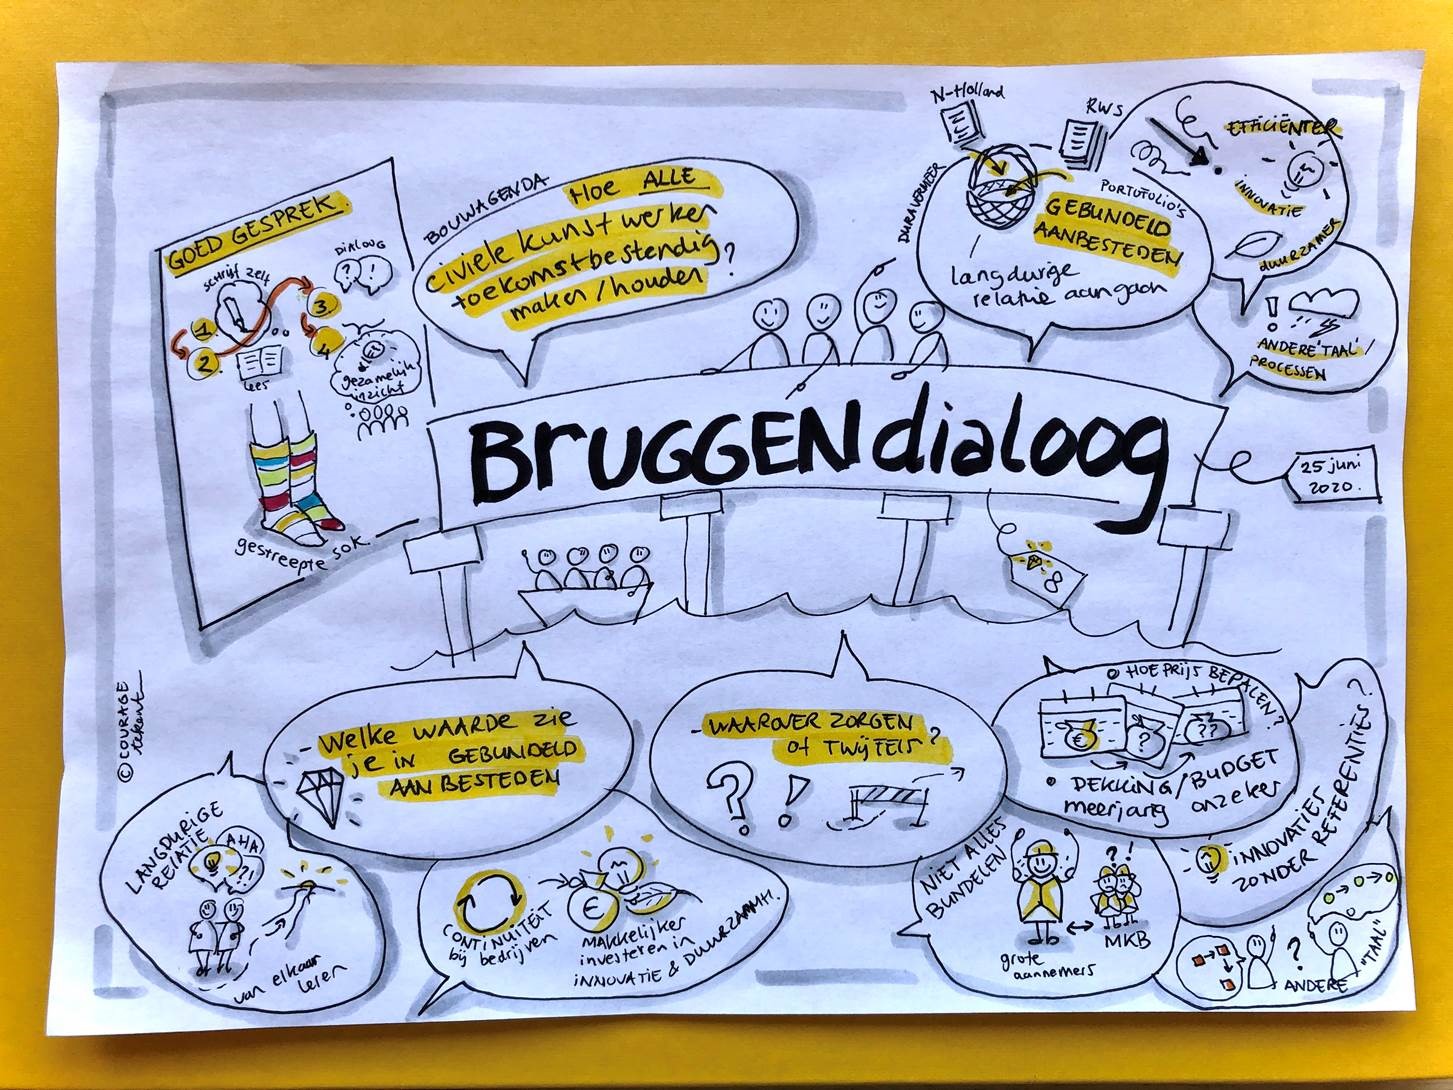 GOED GESPREK
schrijf zelf
DIALOOG
? !
1
2
3
4
lees
gezamelijk
inzicht
gestreepte sok
BOUWAGENDA
Hoe ALLE
civiele kunstwerken
toekomstbestendig
maken / houden ?
N-Holland
RWS
DURA VERMEER
PORTOFOLIO'S
GEBUNDELD
AANBESTEDEN
langdurige
relatie aangaan
EFFICIËNTER
INNOVATIE
duurzamer
!
ANDERE 'TAAL' /
PROCESSEN
BRUGGENdialoog
25 juni
2020.
© COURAGE
tekent
- Welke WAARDE zie
je in GEBUNDELD
AANBESTEDEN
LANGDURIGE
RELATIE
AHA!
?!
van elkaar
leren
CONTINUÏTEIT
bij bedrijven
€
MAKKELIJKER
investeren in
INNOVATIE & DUURZAAMH.
- WAAROVER ZORGEN
of TWIJFELS ?
? !
HOE PRIJS BEPALEN?
€ ? ??
DEKKING / BUDGET
meerjarig onzeker
INNOVATIES
ZONDER REFERENTIES?
NIET ALLES
BUNDELEN
? !
grote
aannemers
MKB
?
ANDERE "TAAL"